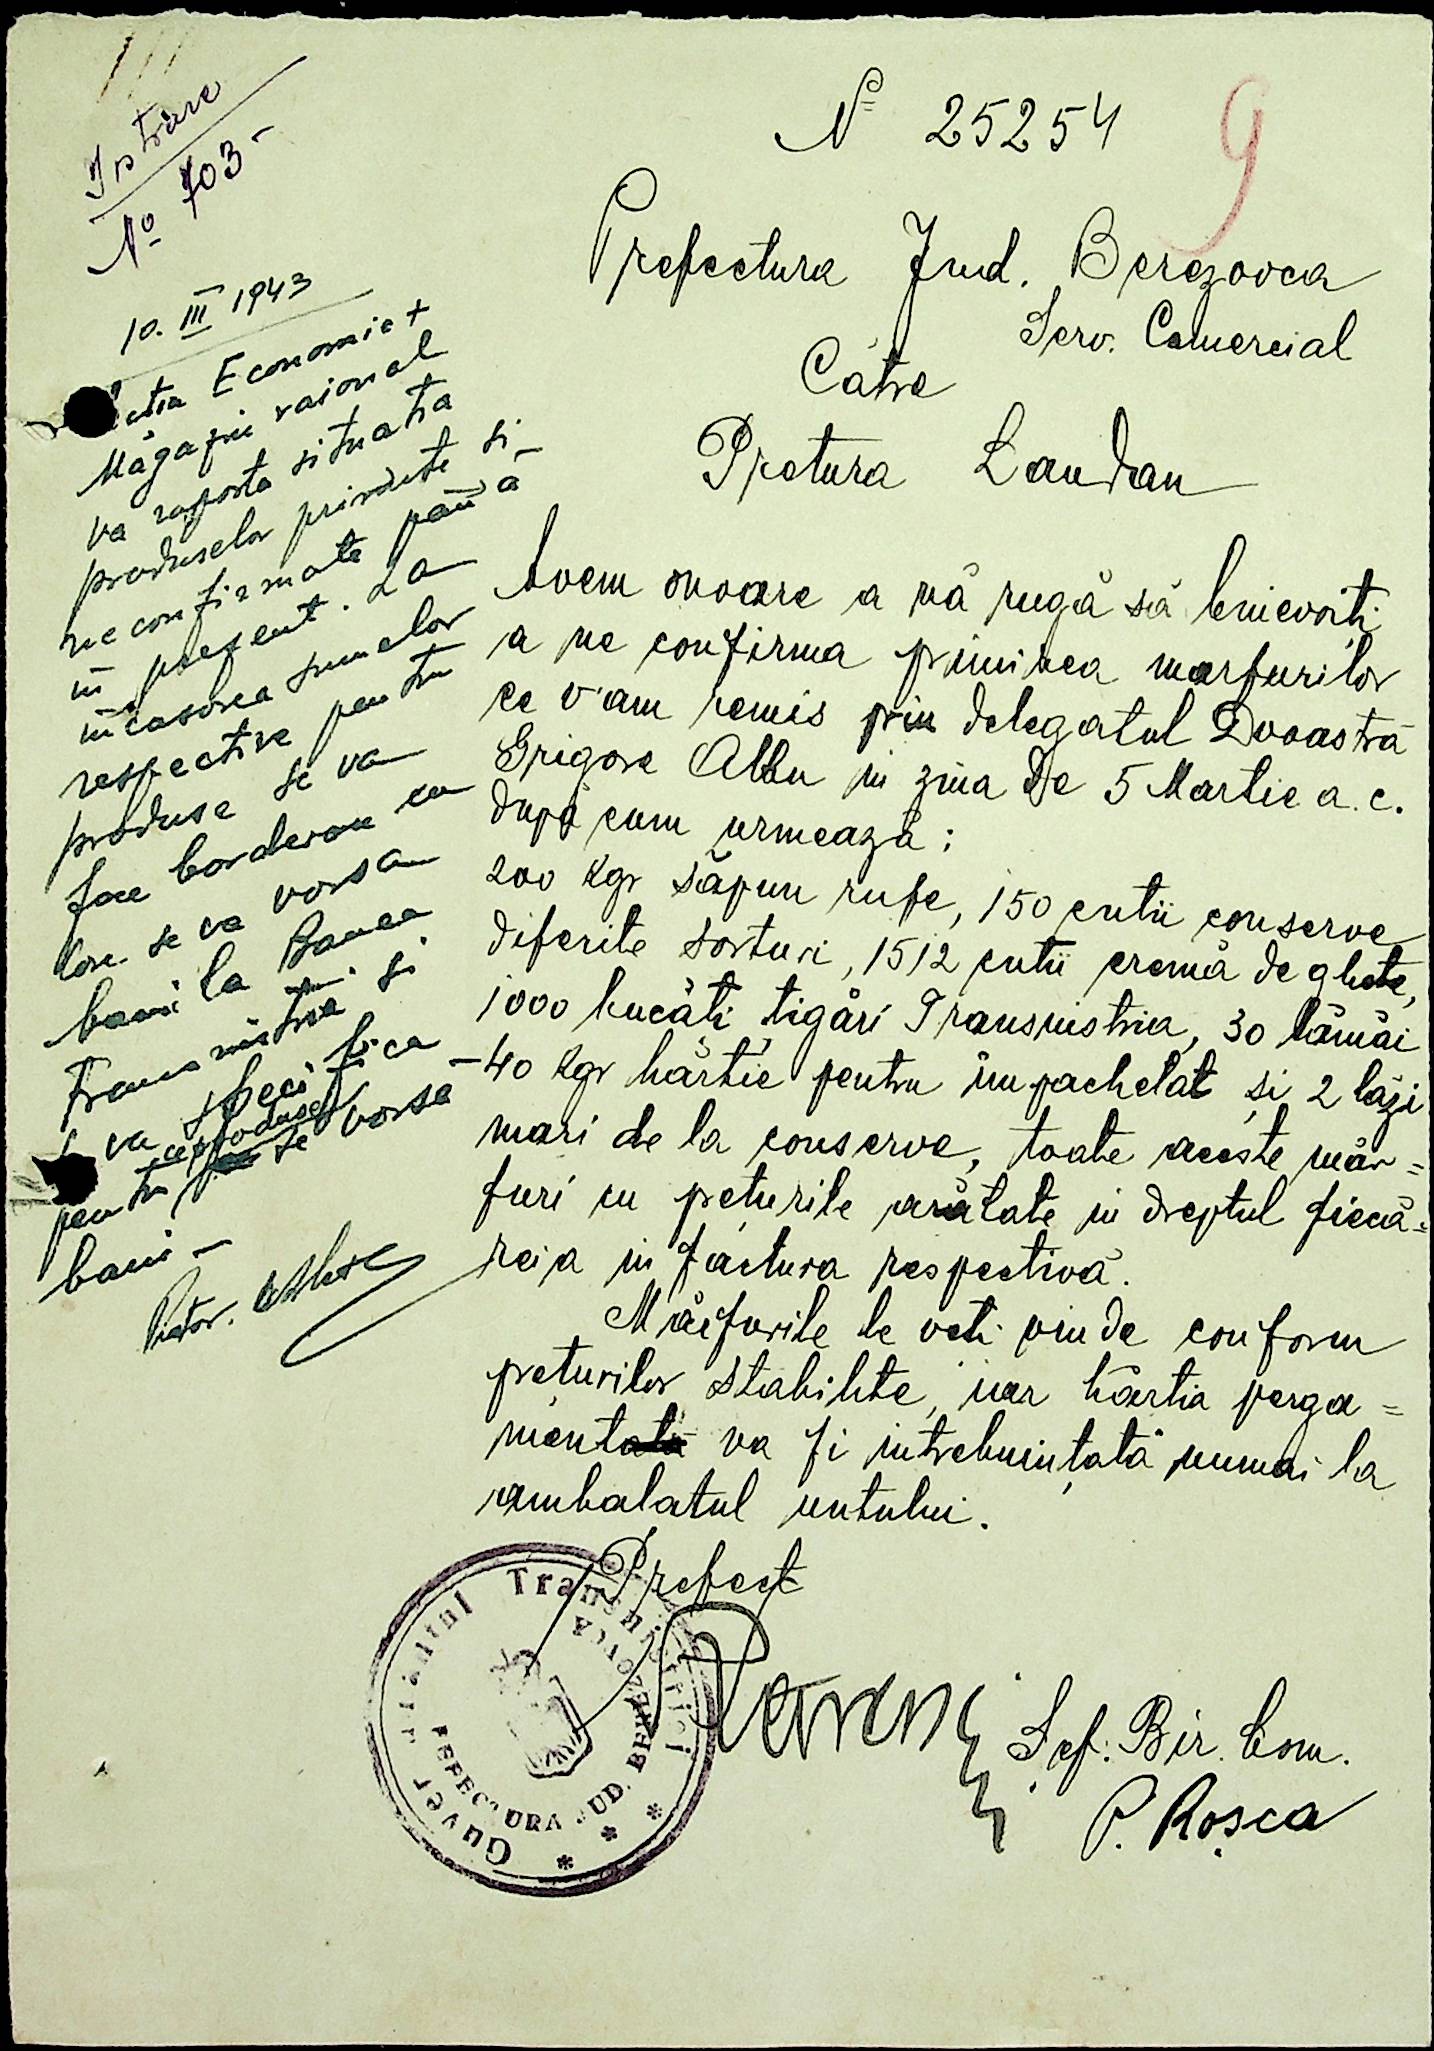 Nº 25254
9
Prefectura Jud. Berezovca
Serv. Comercial
Către
Pretura Landau
Avem onoare a vă rugă să binevoiți
a ne confirma primirea marfurilor
ce v'am remis prin delegatul Dvoastră
Grigore Albu in ziua de 5 Martie a.c.
după cum urmează:
200 kgr săpun rufe, 150 cutii conserve
diferite sorturi, 1512 cutii cremă de ghete,
1000 bucăți țigări Transnistria, 30 lămâi
-40 kgr hârtie pentru impachetat și 2 lăzi
mari de la conserve, toate aceste măr=
furi cu prețurile arătate in dreptul fiecă=
reia in factura respectivă.
Mărfurile le veți vinde conform
prețurilor stabilite, iar hârtia perga=
mentată va fi intrebuințată numai la
ambalatul untului.
Prefect
Șef. Bir. Com.
P. Roșca
Guvernământul Transnistriei
PREFECTURA JUD. BEREZOVCA
Intrare
Nº 703-
10. III 1943
Economic+
Măgazin raional
va raporta situatia
produselor primite si
neconfirmate până
in prezent. La
incasarea sumelor
respective pentru
produse se va
face borderou cu
se va vorsa
banii la Banca
Transnistria și
va specifica
pentru ce produse se vorsa
banii -
Pretor.